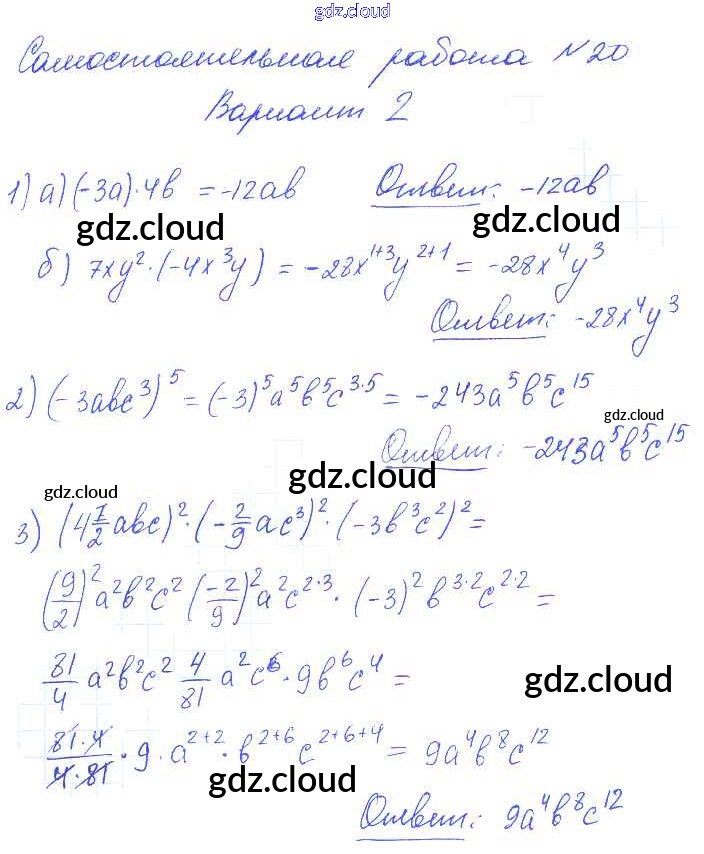 gdz.cloud
Самостоятельная работа №20
Вариант 2
1) а) (-3a)·4b = -12ab Ответ: -12ab
gdz.cloud gdz.cloud
б) 7xy²·(-4x³y) = -28x¹⁺³y²⁺¹ = -28x⁴y³
Ответ: -28x⁴y³
2) (-3abc³)⁵ = (-3)⁵a⁵b⁵c³·⁵ = -243a⁵b⁵c¹⁵
gdz.cloud
Ответ: -243a⁵b⁵c¹⁵
gdz.cloud
gdz.cloud
3) (4 1/2 abc)²·(-2/9 ac³)²·(-3b³c²)² =
(9/2)² a²b²c² (-2/9)² a²c²·³·(-3)² b³·²c²·² =
81/4 a²b²c² 4/81 a²c⁶·9b⁶c⁴ =
gdz.cloud
81·4/4·81 ·9·a²⁺²·b²⁺⁶c²⁺⁶⁺⁴ = 9a⁴b⁸c¹²
gdz.cloud
Ответ: 9a⁴b⁸c¹²